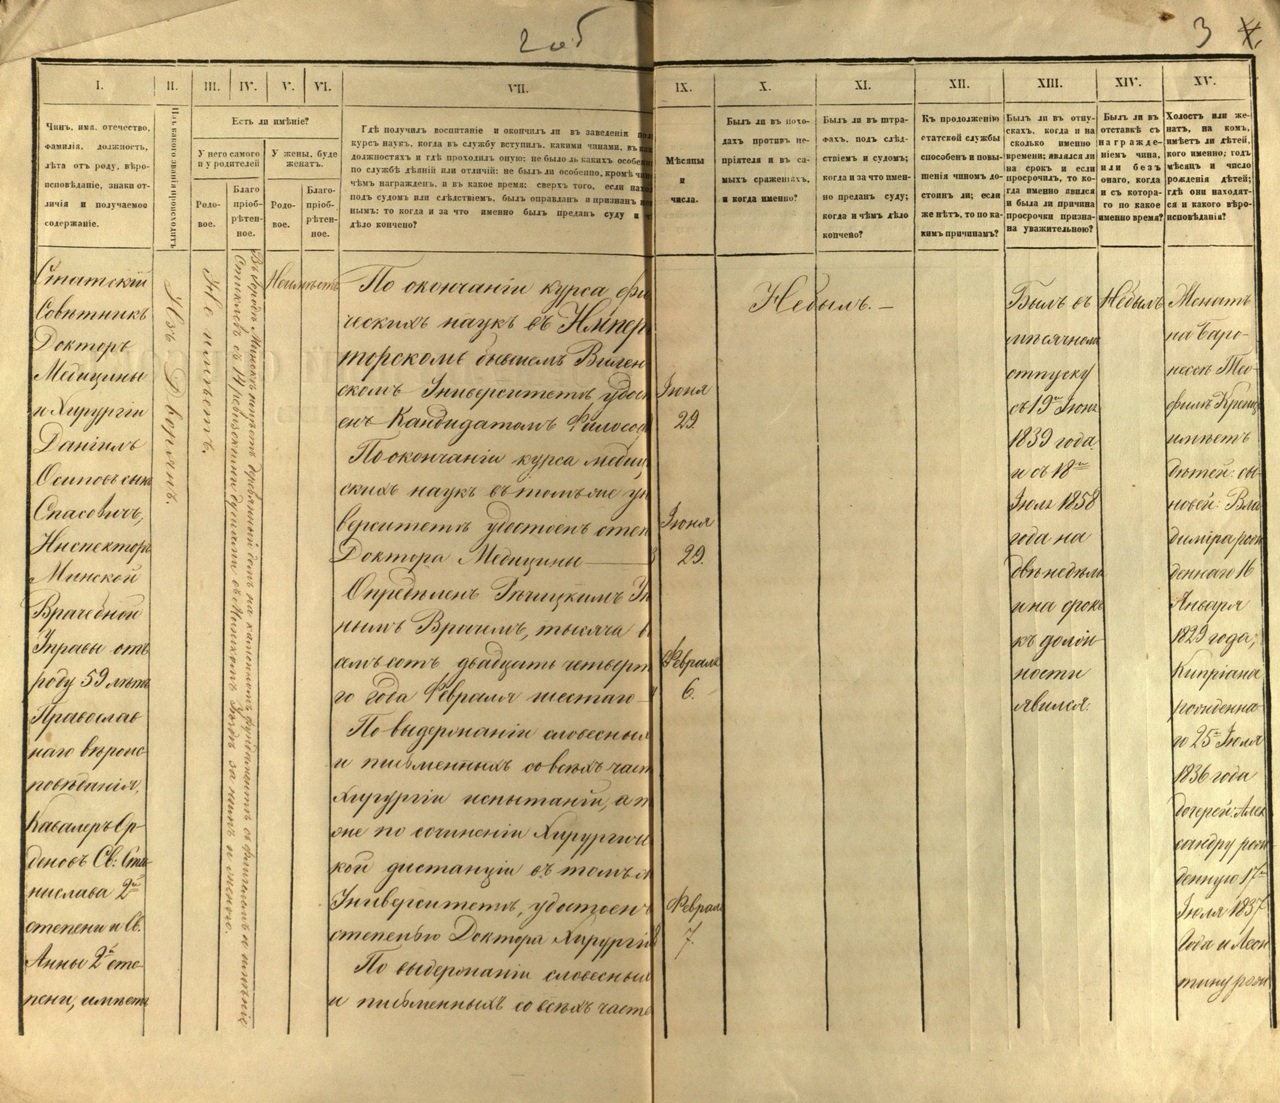 2 об
3
I.
II.
III.
IV.
V.
VI.
VII.
IX.
X.
XI.
XII.
XIII.
XIV.
XV.
Чинъ, имя, отечество,
фамилія, должность,
лѣта отъ роду, вѣро-
исповѣданіе, знаки от-
личія и получаемое
содержаніе.
Изъ какого званія происходитъ
Есть ли имѣніе?
У него самого
и у родителей
У жены, буде
женатъ.
Родо-
вое.
Благо
пріобрѣ-
тен-
ное.
Родо-
вое.
Благо-
пріоб-
рѣтен-
ное.
Гдѣ получилъ воспитаніе и окончилъ ли въ заведеніи
курсъ наукъ, когда въ службу вступилъ, какими чинами, въ
должностяхъ и гдѣ проходилъ оную: не было ль какихъ
по службѣ дѣяній или отличій: не былъ ли особенно, кромѣ
чѣмъ награжденъ, и въ какое время: сверхъ того, если
подъ судомъ или слѣдствіемъ, былъ оправданъ и признанъ
нымъ: то когда и за что именно былъ преданъ суду и
дѣло кончено?
Мѣсяцы
и
числа.
Былъ ли въ похо-
дахъ противъ не-
пріятеля и въ са-
мыхъ сраженіяхъ,
и когда именно?
Былъ ли въ штра-
фахъ, подъ слѣд-
ствіемъ и судомъ;
когда и за что имен-
но преданъ суду;
когда и чѣмъ дѣло
кончено?
Къ продолженію
статской службы
способенъ и повы-
шенія чиномъ до-
стоинъ ли; если
же нѣтъ, то по ка-
кимъ причинамъ?
Былъ ли въ отпу-
скахъ, когда и на
сколько именно
времени; являлся ли
на срокъ и если
просрочилъ, то ко-
гда именно явился
и была ли причина
просрочки призна-
на уважительною?
Былъ ли въ
отставкѣ съ
награжде-
ніемъ чина,
или безъ
онаго, когда
и съ котора-
го по какое
именно время?
Холостъ или же-
натъ, на комъ,
имѣетъ ли дѣтей,
кого именно; годъ
мѣсяцъ и число
рожденія дѣтей;
гдѣ они находят-
ся и какого вѣро-
исповѣданія?
Статскій
Совѣтникъ
Докторъ
Медицины
и Хирургіи
Даніилъ
Осиповъ сынъ
Спасовичъ,
Инспекторъ
Минской
Врачебной
Управы отъ
роду 59 лѣтъ
Православ
наго вѣроис
повѣданія,
Кавалеръ Ор-
деновъ Св: Ста-
нислава 2й
степени и Св.
Анны 2й сте-
пени, имѣетъ
Изъ Дворянъ.
Не имѣетъ.
Въ городѣ Минскѣ имѣетъ деревянный домъ на каменномъ фундаментѣ съ флигелемъ и имѣніе
съ 14 ревизскими душами въ Минскомъ Уѣздѣ за нимъ и женою.
Неимѣетъ
По окончаніи курса физи
ческихъ наукъ въ Импера
торскомъ бывшемъ Вилен
скомъ Университетѣ удосто
енъ Кандидатомъ Философ
По окончаніи курса медиц
скихъ наукъ въ томъ же уни
верситетѣ удостоенъ степ
Доктора Медицины
Опредѣленъ Рѣчицкимъ У
нымъ Врачемъ, тысяча в
емъ сотъ двадцать четверта
го года Февраля шестаго
По выдержаніи словесныхъ
и письменныхъ со всѣхъ част
Хирургіи испытаній, а т
же по сочиненіи Хирургиче
кой дистанціи въ томъ ж
Университетѣ, удостоенъ
степенью Доктора Хирургіи
По выдержаніи словесныхъ
и письменныхъ со всѣхъ част
Іюня
29
Іюня
29.
Февраля
6.
Февраля
7.
Небылъ.
Былъ въ
мѣсячномъ
отпуску
съ 19го Іюня
1839 года
и съ 18го
Іюля 1858
года на
двѣ недѣли
и на срокъ
къ долж
ности
явился.
Небылъ
Женатъ
на Баро-
нессѣ Тео-
филѣ Крейц
имѣетъ
дѣтей: сы-
новей: Вла
диміра рож
деннаго 16
Января
1829 года,
Кипріана
рожденна-
го 25го Іюля
1836 года
дочерей: Алек
сандру рож
денную 17го
Іюля 1837
года и Леон
тину рожд